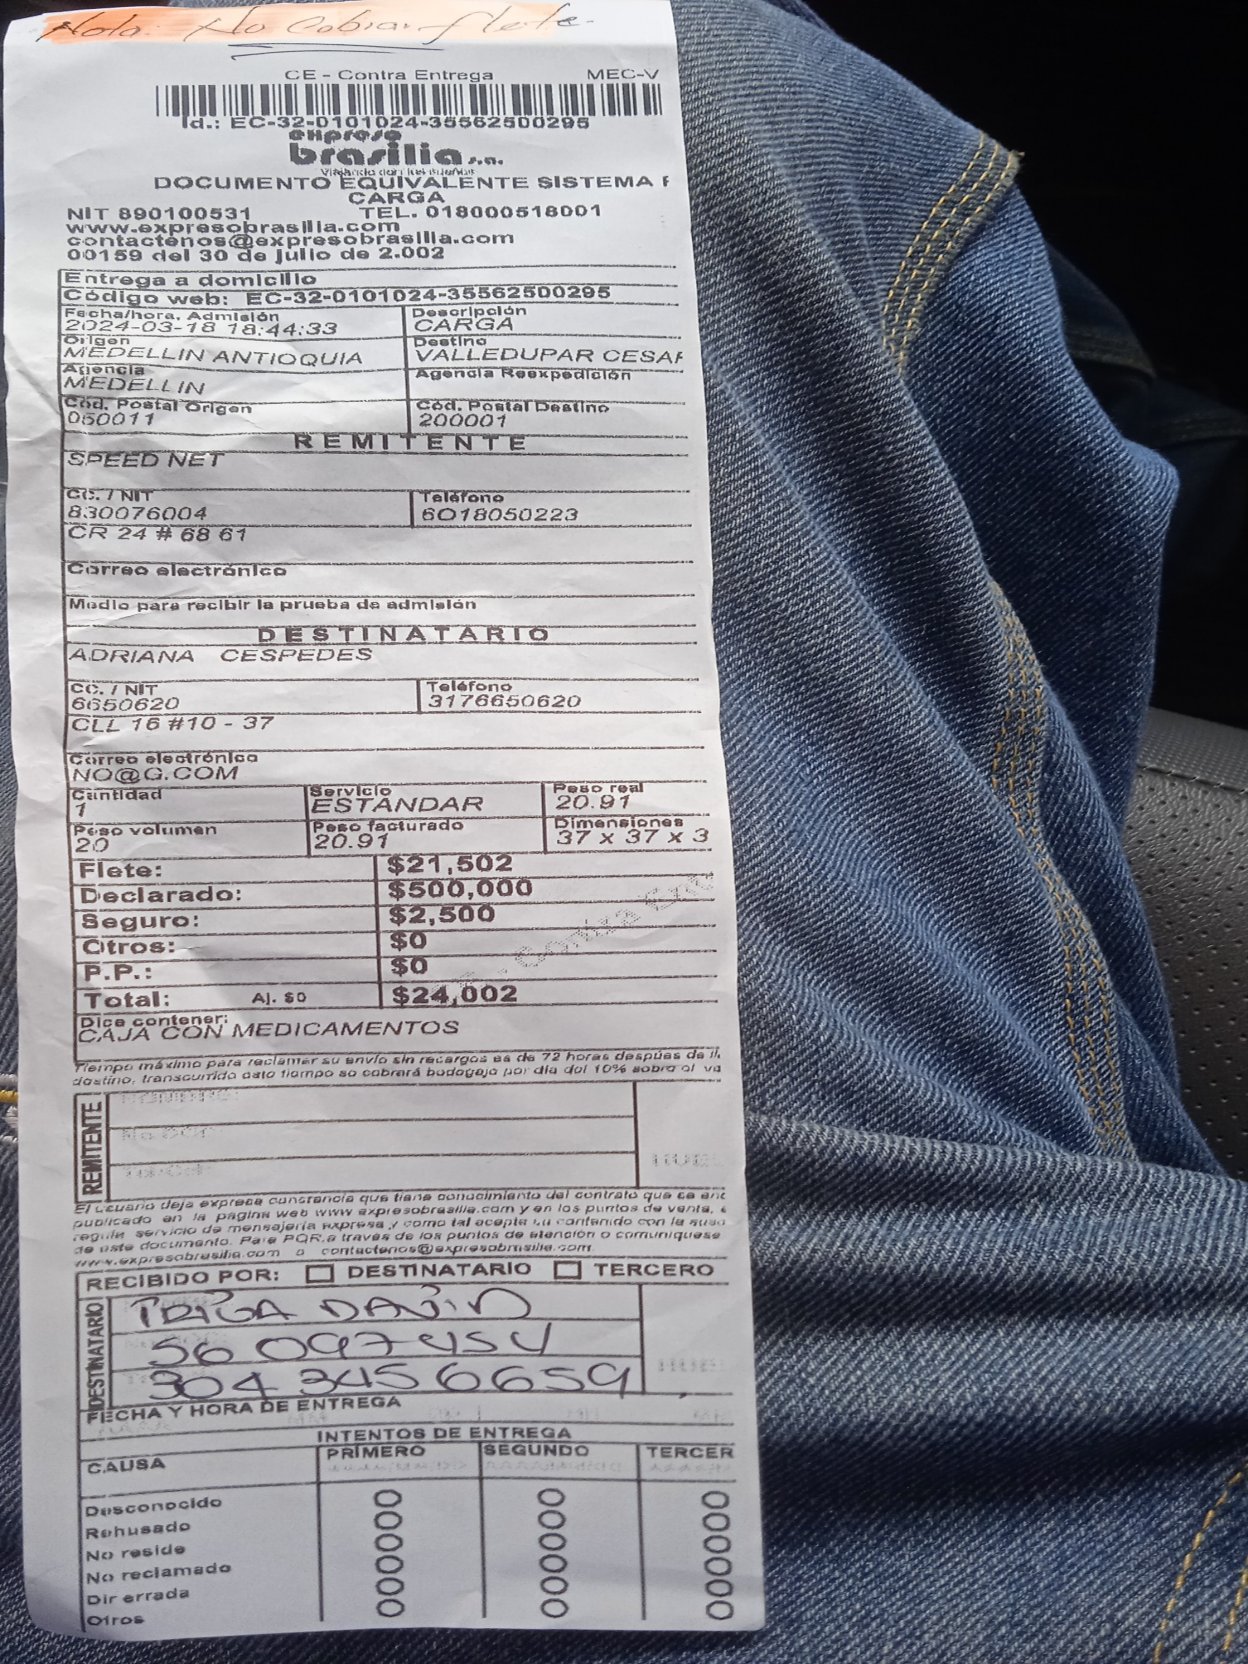 Nota: No Cobrar flete.
CE - Contra Entrega MEC-V
Id.: EC-32-0101024-35562500295
expreso
brasilia s.a.
DOCUMENTO EQUIVALENTE SISTEMA
CARGA
NIT 890100531 TEL. 018000518001
www.expresobrasilia.com
contactenos@expresobrasilia.com
00159 del 30 de julio de 2.002
Entrega a domicilio
Código web: EC-32-0101024-35562500295
Fecha/hora. Admisión Descripción
2024-03-18 18:44:33 CARGA
Origen Destino
MEDELLIN ANTIOQUIA VALLEDUPAR CESAR
Agencia Agencia Reexpedición
MEDELLIN
Cód. Postal Origen Cód. Postal Destino
050011 200001
REMITENTE
SPEED NET
CC. / NIT Teléfono
830076004 6018050223
CR 24 # 68 61
Correo electrónico
Medio para recibir la prueba de admisión
DESTINATARIO
ADRIANA CESPEDES
CC. / NIT Teléfono
6650620 3176650620
CLL 16 #10 - 37
Correo electrónico
NO@G.COM
Cantidad Servicio Peso real
1 ESTANDAR 20.91
Peso volumen Peso facturado Dimensiones
20 20.91 37 x 37 x 3
Flete: $21,502
Declarado: $500,000
Seguro: $2,500
Otros: $0
P.P.: $0
Total: Aj. $0 $24,002
Dice contener:
CAJA CON MEDICAMENTOS
Tiempo máximo para reclamar su envío sin recargos es de 72 horas después de
destino, transcurrido esto tiempo se cobrará bodegaje por día del 10% sobre el
REMITENTE
El usuario deja expresa constancia que tiene conocimiento del contrato que se
publicado en la pagina web www expresobrasilia.com y en los puntos de venta,
regula servicio de mensajería expresa y como tal acepta su contenido con la
de este documento. Para PQR a través de los puntos de atención o comuniquese
www.expresobrasilia.com o contactenos@expresobrasilia.com
RECIBIDO POR: DESTINATARIO TERCERO
DESTINATARIO
DAVID
56 097454
304 3456659
FECHA Y HORA DE ENTREGA
INTENTOS DE ENTREGA
CAUSA PRIMERO SEGUNDO TERCER
Desconocido
Rehusado
No reside
No reclamado
Dir errada
Otros